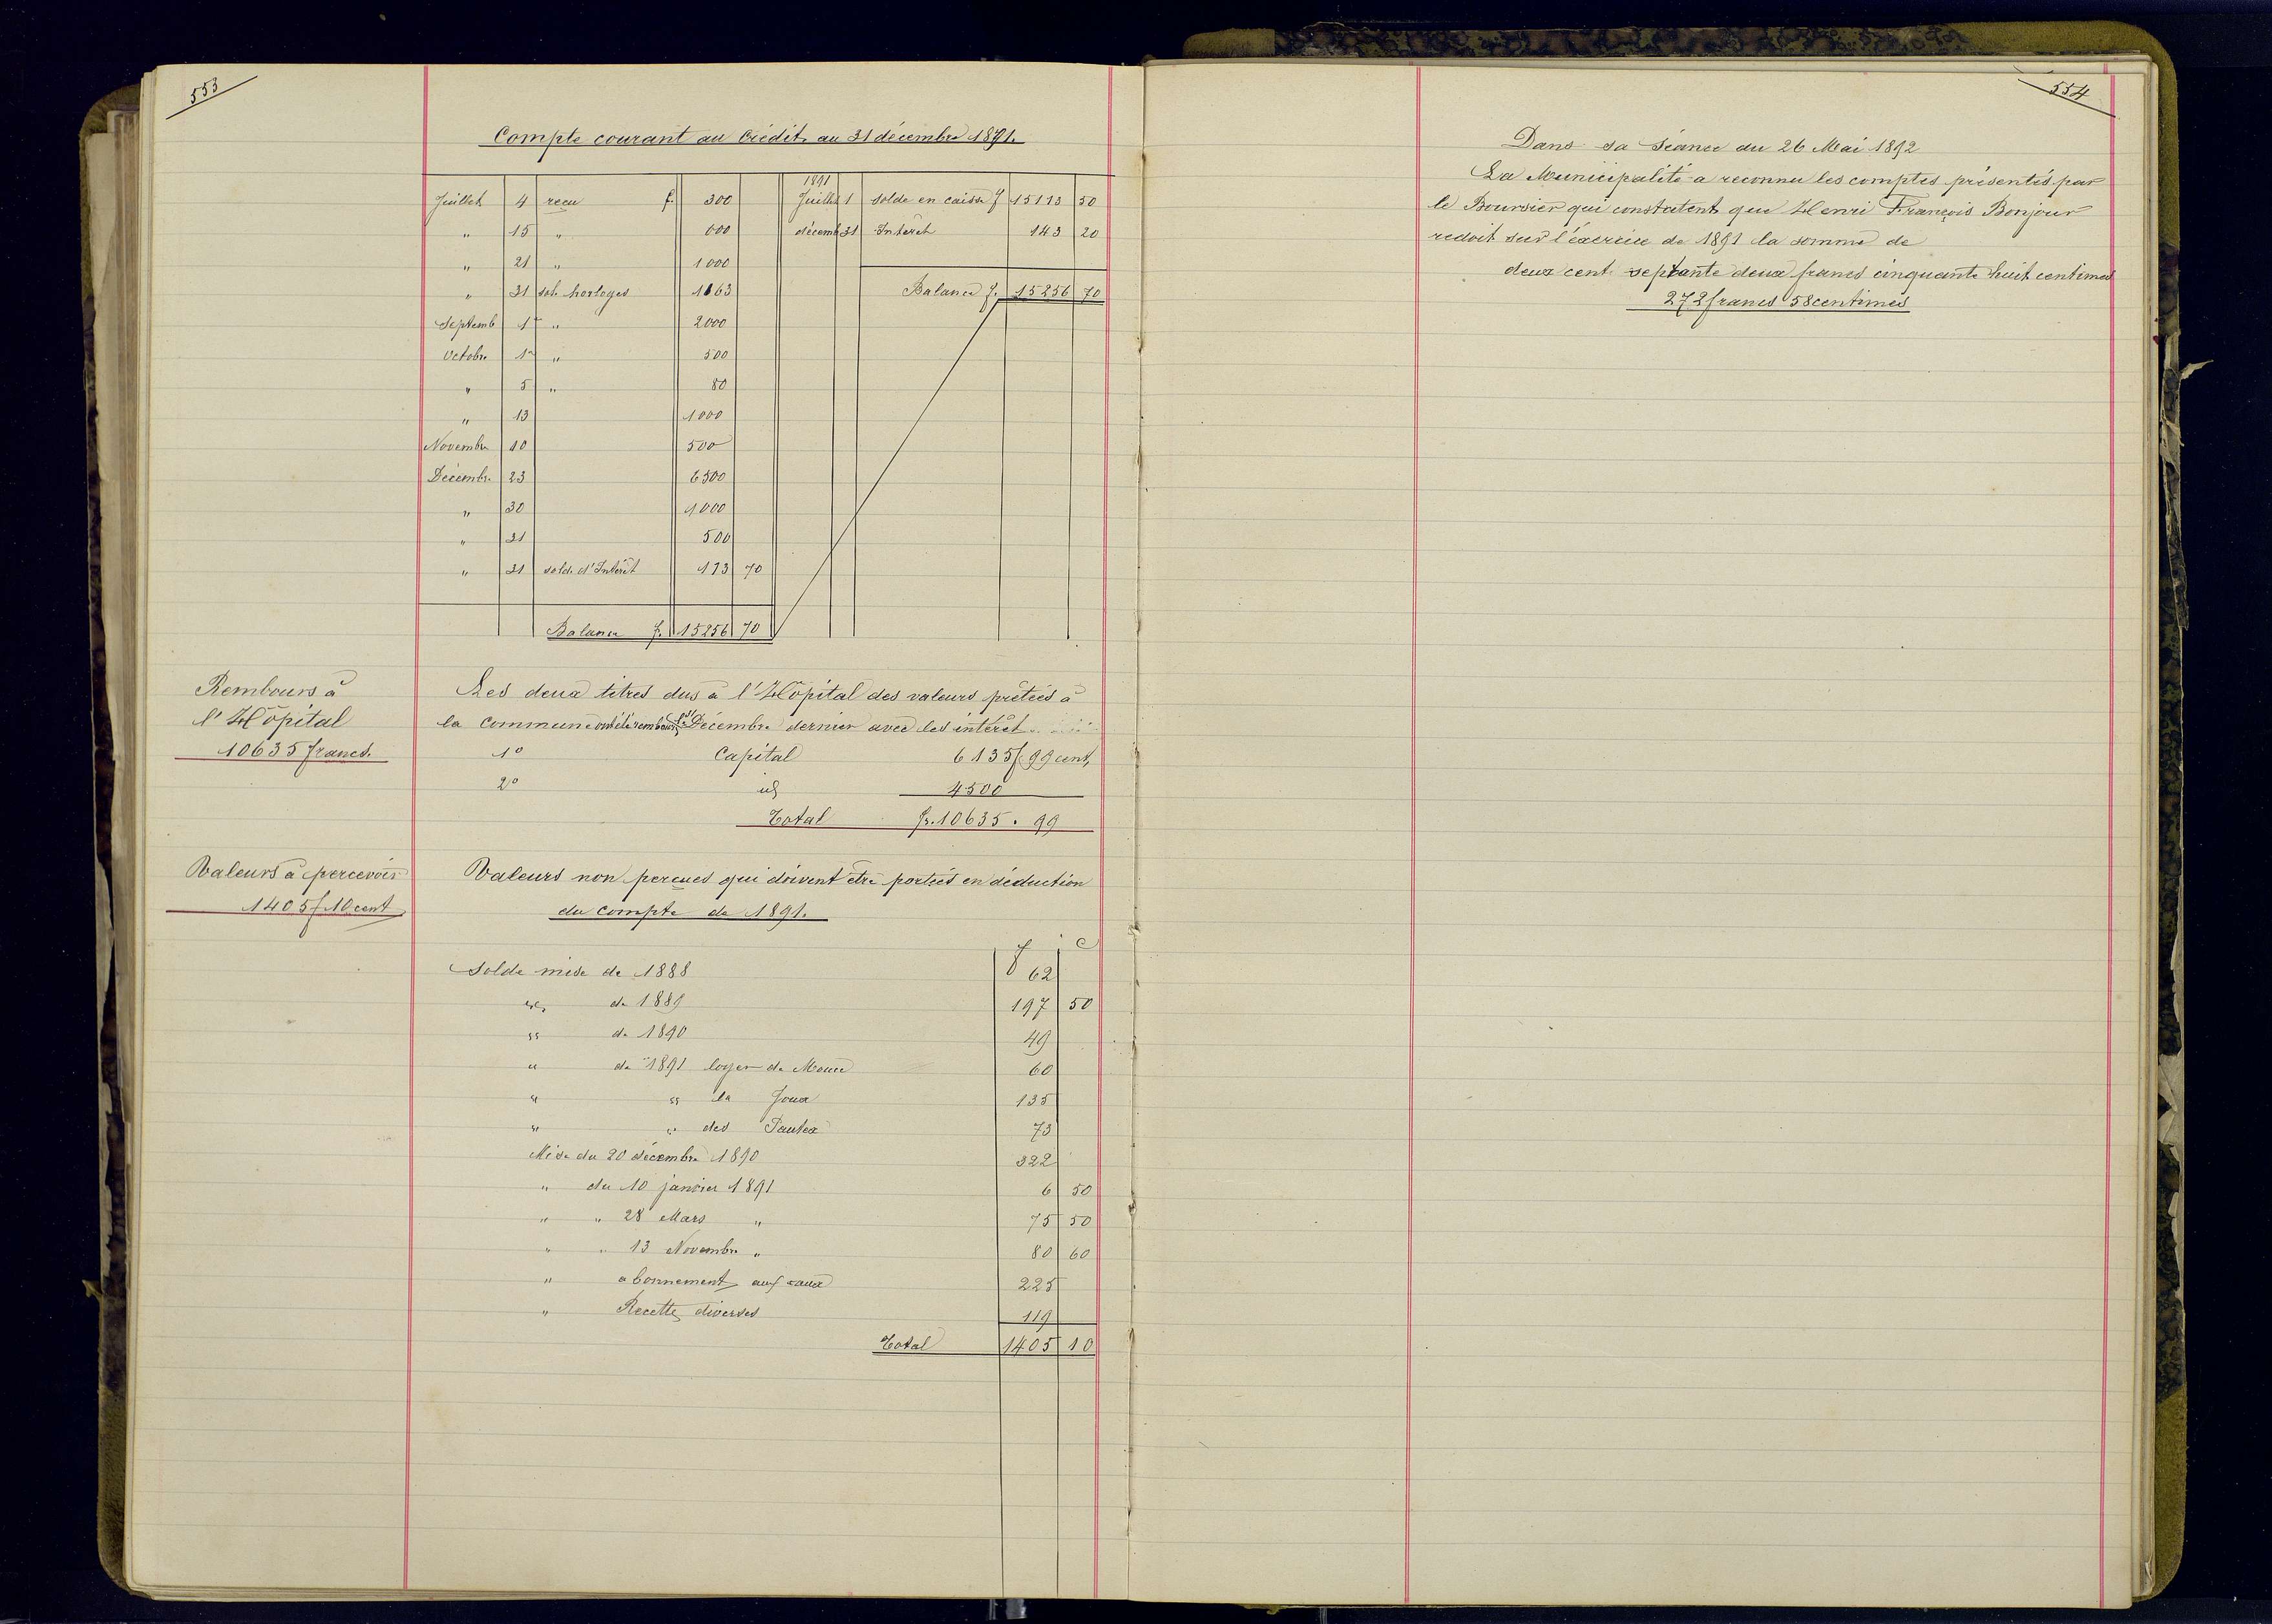 553
Compte courant au Crédit au 31 décembre 1891.
Juillet 4 recu f. 300
" 15 " 600
" 21 " 1000
" 31 sol. horloges 1163
Septemb 1er " 2000
Octobre 1er " 500
" 5 " 80
" 13 1000
Novembre 10 500
Décembre 23 6500
" 30 1000
" 31 500
" 31 solde d'Intérêt 113 70
Balance f. 15256 70
1891
Juillet 1 solde en caisse f 15113 50
décemb 31 Intérêt 143 20
Balance f. 15256 70
Rembours à
l'Hôpital
10635 francs.
Les deux titres dus à l'Hôpital des valeurs prêtées à
la commune ont été rembours. Décembre dernier avec les intérêt
1º Capital 6135f 99 cent,
2º id 4500
Total fr. 10635. 99
Valeurs à percevoir
1405 f 10 cent
Valeurs non percues qui doivent être portées en déduction
du compte de 1891.
f c
Solde mise de 1888 f 62
" de 1889 197 50
" de 1890 49
" de 1891 loyer de 60
" " la Joux 135
" " des 73
Mise du 20 décembre 1890 322
" du 10 janvier 1891 6 50
" " 28 Mars " 75 50
" " 13 Novembre " 80 60
" abonnement aux eaux 225
" Recettes diverses 119
Total 1405 10
554
Dans sa Séance du 26 Mai 1892
La Municipalité a reconnu les comptes présentés par
le Boursier qui constatent que Henri François Bonjour
redoit sur l'éxercice de 1891 la somme de
deux cent septante deux francs cinquante huit centimes
272 francs 58 centimes